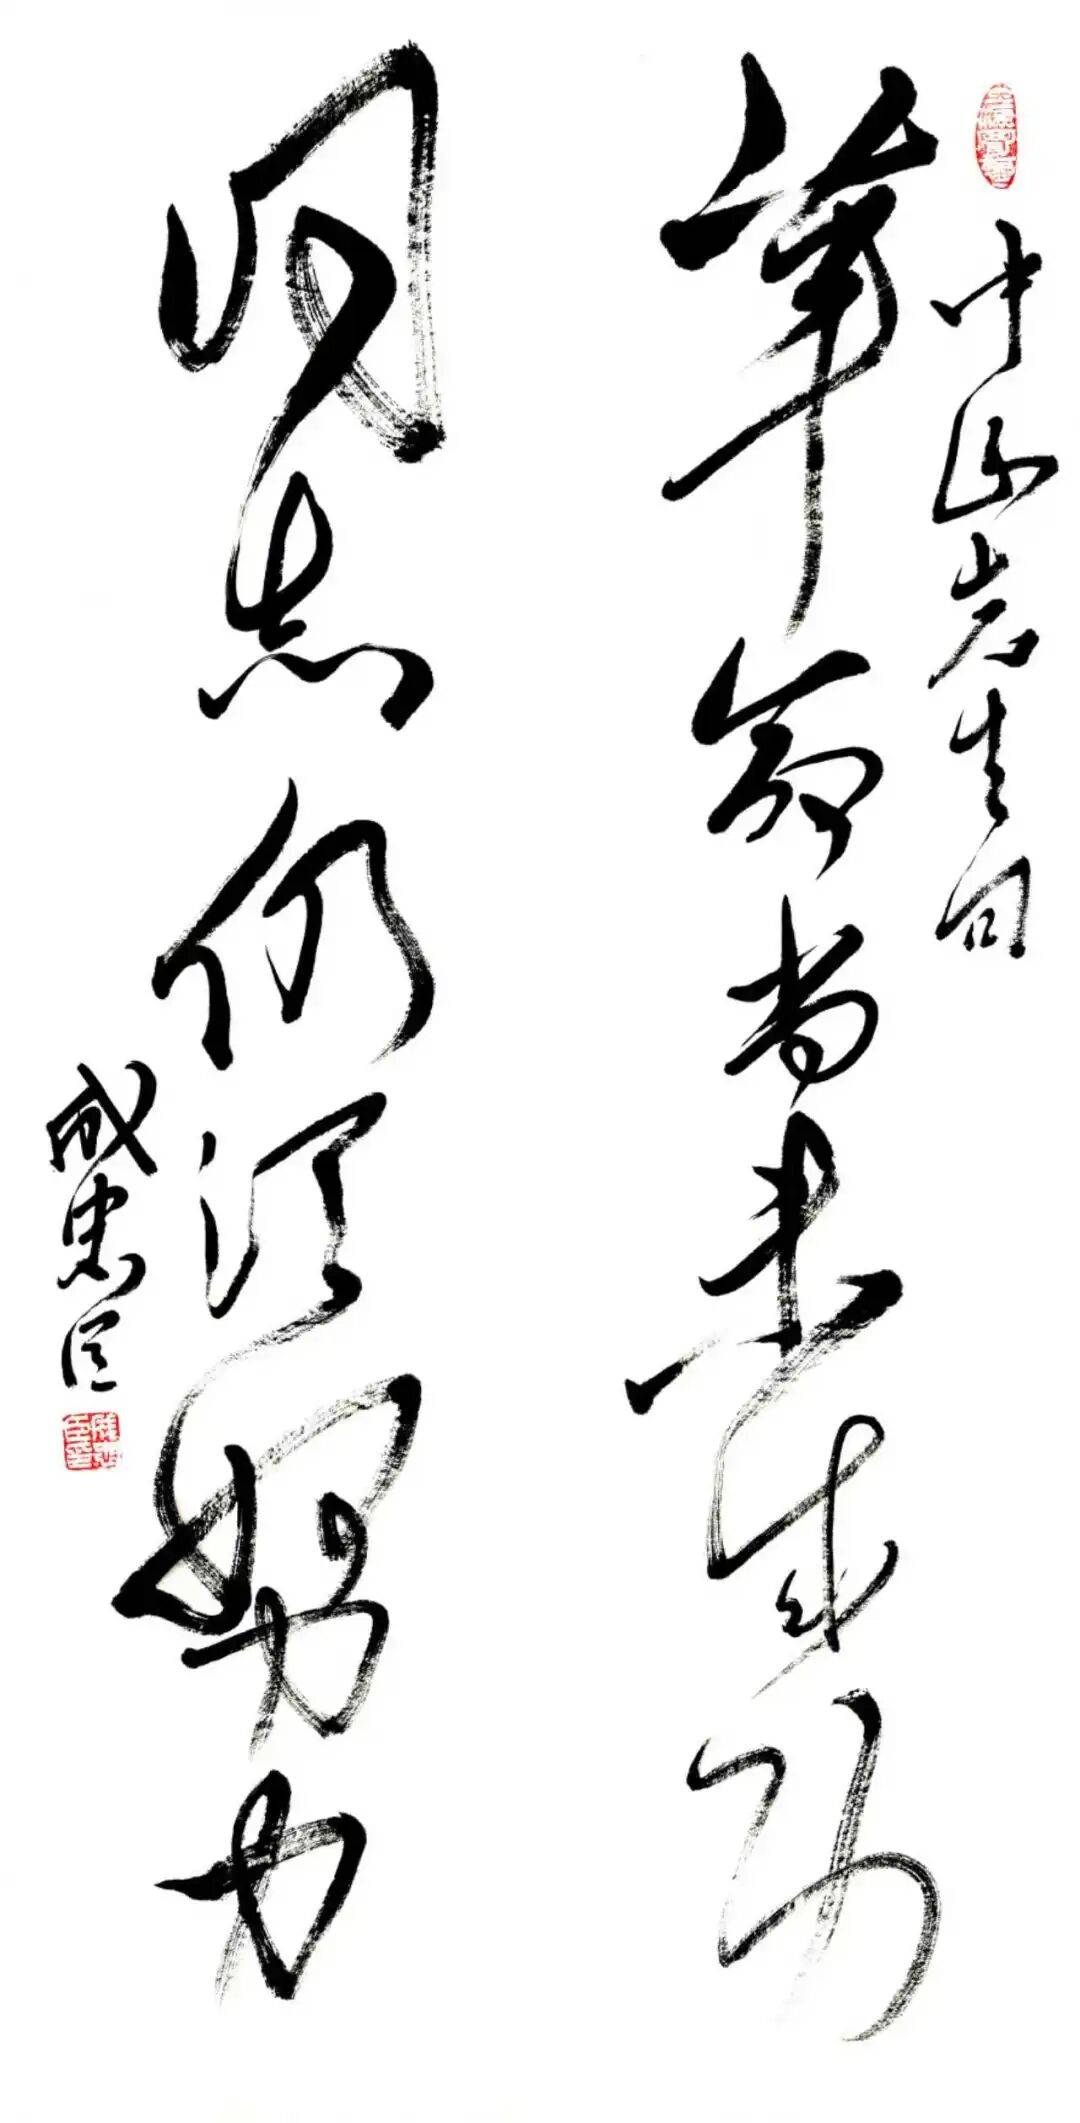 中山先生句
革命尚未成功
同志仍须努力
忠臣